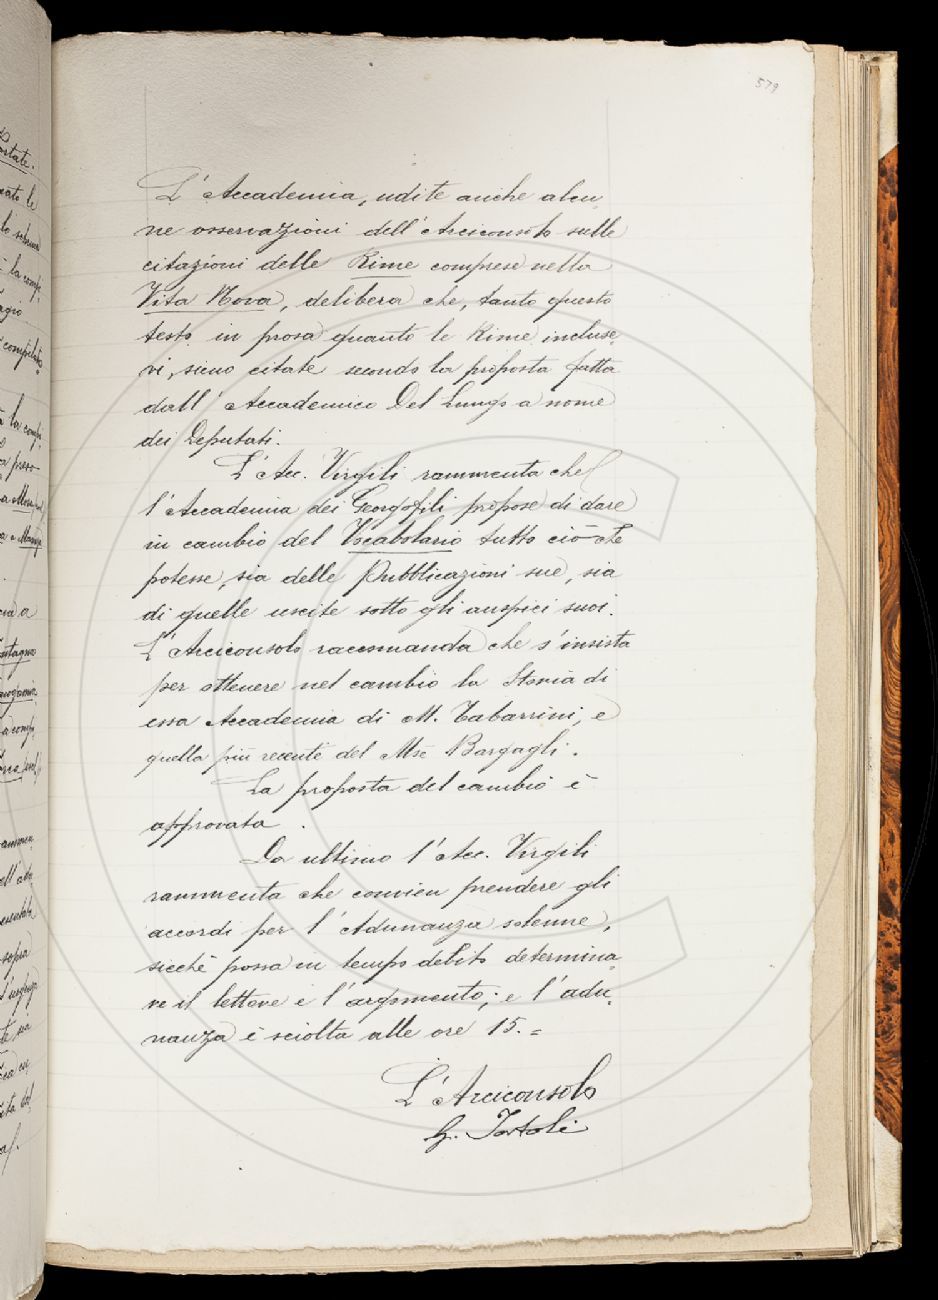 579
L'Accademia, udite anche alcu-
ne osservazioni dell'Arciconsolo sulle
citazioni delle Rime comprese nella
Vita Nova, delibera che, tanto questo
testo in prosa quanto le Rime incluse-
vi, sieno citate secondo la proposta fatta
dall'Accademico Del Lungo a nome
dei Deputati.
L'Acc. Virgili rammenta che
l'Accademia dei Georgofili propose di dare
in cambio del Vocabolario tutto ciò che
potesse, sia delle Pubblicazioni sue, sia
di quelle uscite sotto gli auspici suoi.
L'Arciconsolo raccomanda che s'insista
per ottenere nel cambio la Storia di
essa Accademia di M. Tabarrini, e
quella più recente del Mse Bargagli.
La proposta del cambio è
approvata.
Da ultimo l'Acc. Virgili
rammenta che convien prendere gli
accordi per l'Adunanza solenne,
sicchè possa in tempo debito determina-
re il lettore e l'argomento; e l'adu-
nanza è sciolta alle ore 15.=
L'Arciconsolo
G. Tortoli